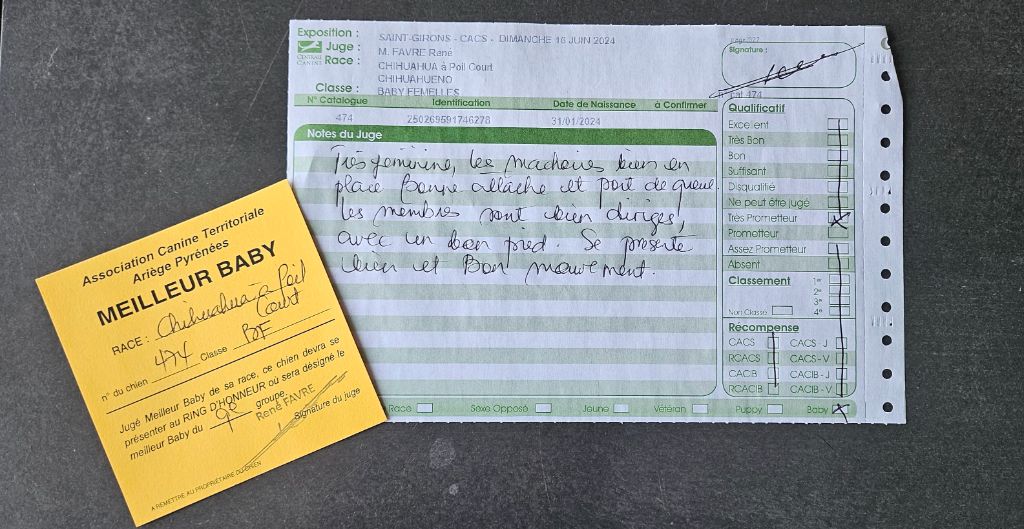 Exposition : SAINT-GIRONS - CACS - DIMANCHE 16 JUIN 2024
CENTRALE CANINE
Juge : M. FAVRE René
Race : CHIHUAHUA à Poil Court
CHIHUAHUENO
Classe : BABY FEMELLES
Signature :
N° Catalogue Identification Date de Naissance à Confirmer
474 250269591746278 31/01/2024
Notes du Juge
Très féminine, les machoires bien en
place Bonne attache et port de queue.
les membres sont bien dirigés,
avec un bon pied. Se présente
bien et Bon mouvement.
474
Qualificatif
Excellent
Très Bon
Bon
Suffisant
Disqualifié
Ne peut être jugé
Très Prometteur X
Prometteur
Assez Prometteur
Absent
Classement 1er
2e
3e
Non Classé 4e
Récompense
CACS CACS - J
RCACS CACS - V
CACIB CACIB - J
RCACIB CACIB - V
Race Sexe Opposé Jeune Vétéran Puppy Baby X
Association Canine Territoriale
Ariège Pyrénées
MEILLEUR BABY
RACE : Chihuahua à Poil
Court
n° du chien 474 Classe BF
Jugé Meilleur Baby de sa race, ce chien devra se
présenter au RING D'HONNEUR où sera désigné le
meilleur Baby du 9e groupe.
René FAVRE
Signature du juge
A REMETTRE AU PROPRIETAIRE DU CHIEN